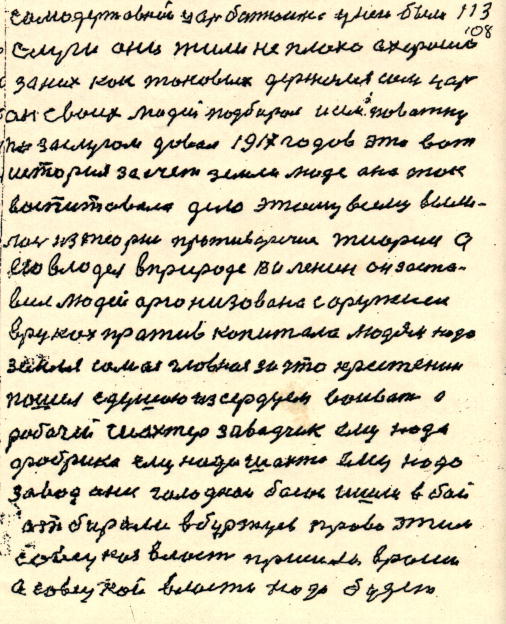 самодержовной цар батюшке у ней были 113
108
слуги они жили не плохо а хорошо
за них как токовых держался сам цар
он своих людей подбирал и им поватну
по заслугом довал 1917 годов это вот
история за счет земли люде она так
воспитовала дело этому всему вы
из теории противоречие тиория а
его влодел в природе ви ленин он заста-
вил людей арганизована с оружием
в руках против капитала людям надо
земля самая гловная за что крестенин
пошел с душою из сердцем воиват а
рабочей шахтер заводчик ему нада
фабрика ему нада шахта ему надо
завод они голодной босой шли в бой
атбирали в буржуев право этим
совецкоя власт пришла время
а совецкой власти надо будет